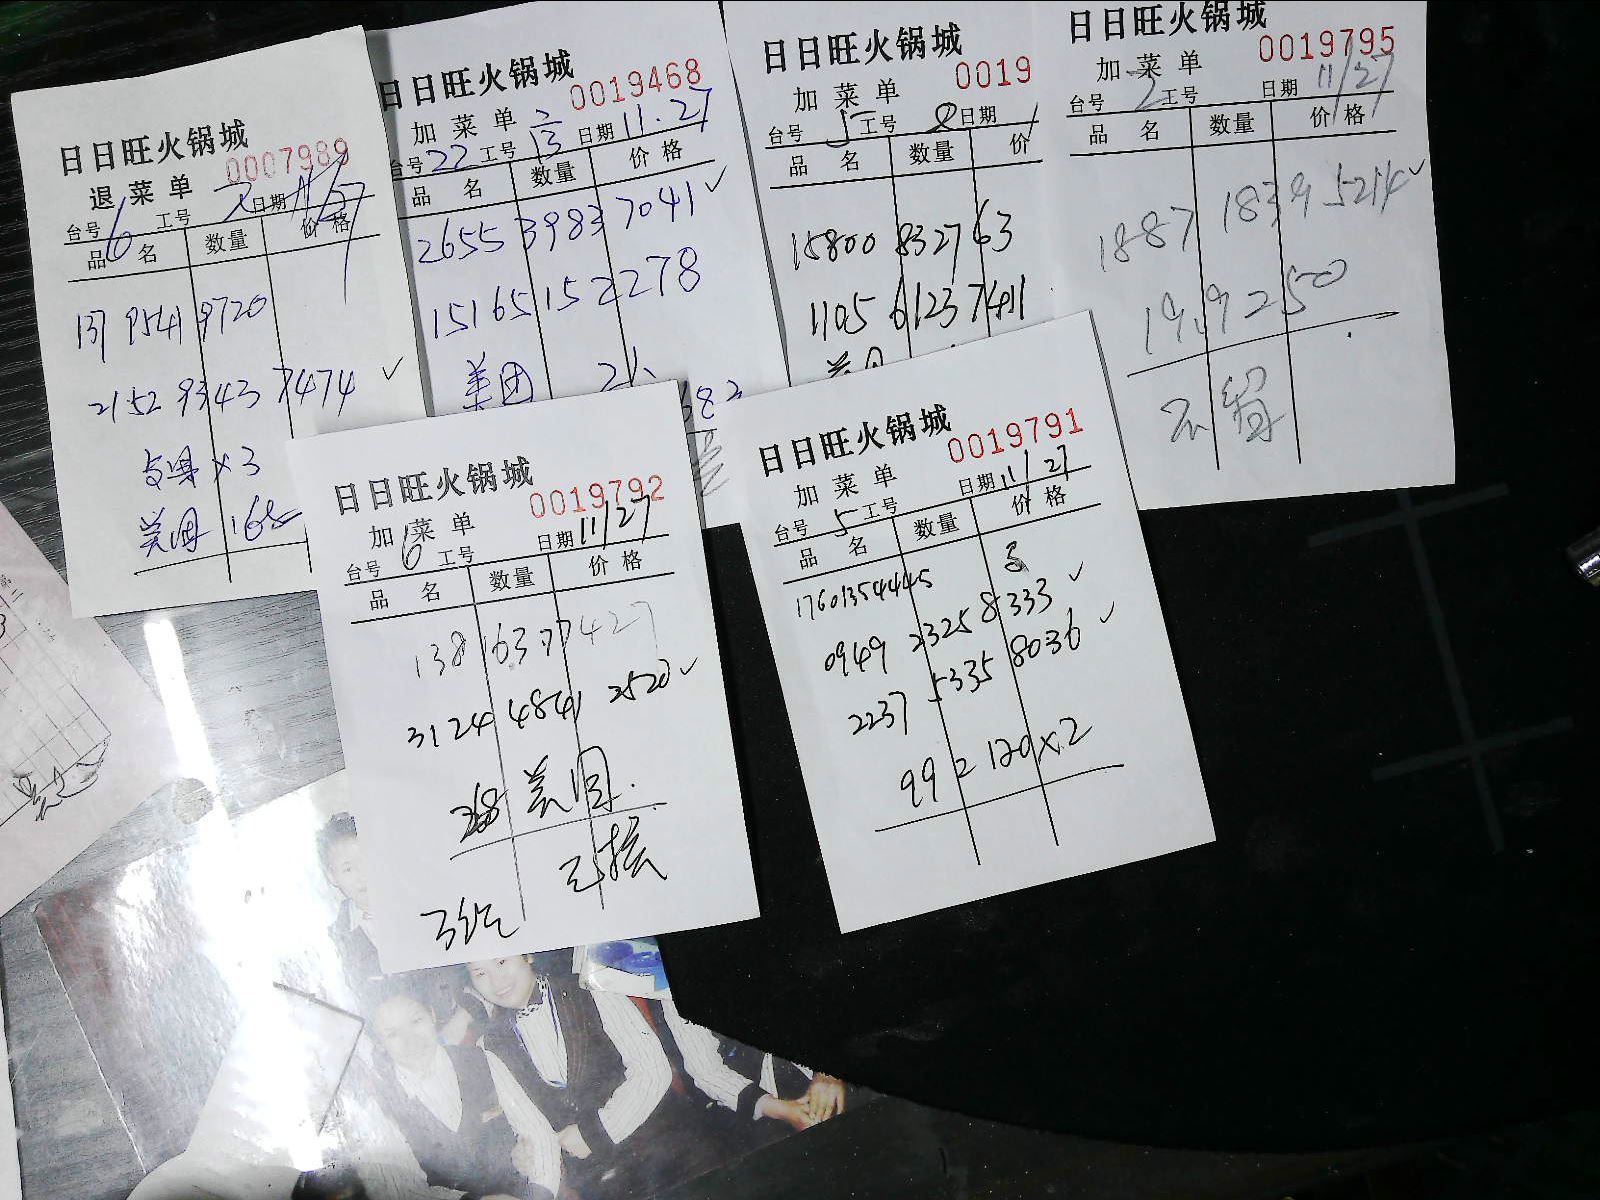 日日旺火锅城
0007989
退菜单
台号 6 工号 日期
品名 数量 价格
137 9541 9720
2152 9343 7474
×3
美团 168
日日旺火锅城
0019468
加菜单
台号 22 工号 13 日期 11.27
品名 数量 价格
2655 3983 7041
15165152278
美团
日日旺火锅城
0019
加菜单
台号 5 工号 日期
品名 数量 价
15800832763
1105 6123 7411
日日旺火锅城
0019795
加菜单
台号 2 工号 日期 11/27
品名 数量 价格
1887 1839 5214
199250
不留
日日旺火锅城
0019792
加菜单
台号 6 工号 日期 11/27
品名 数量 价格
138 16377427
3124 4841 2520
268 美团
已接
日日旺火锅城
0019791
加菜单
台号 5 工号 日期 11/27
品名 数量 价格
17601354445
0949 2325 8333
2237 5335 8036
99 2 120×2